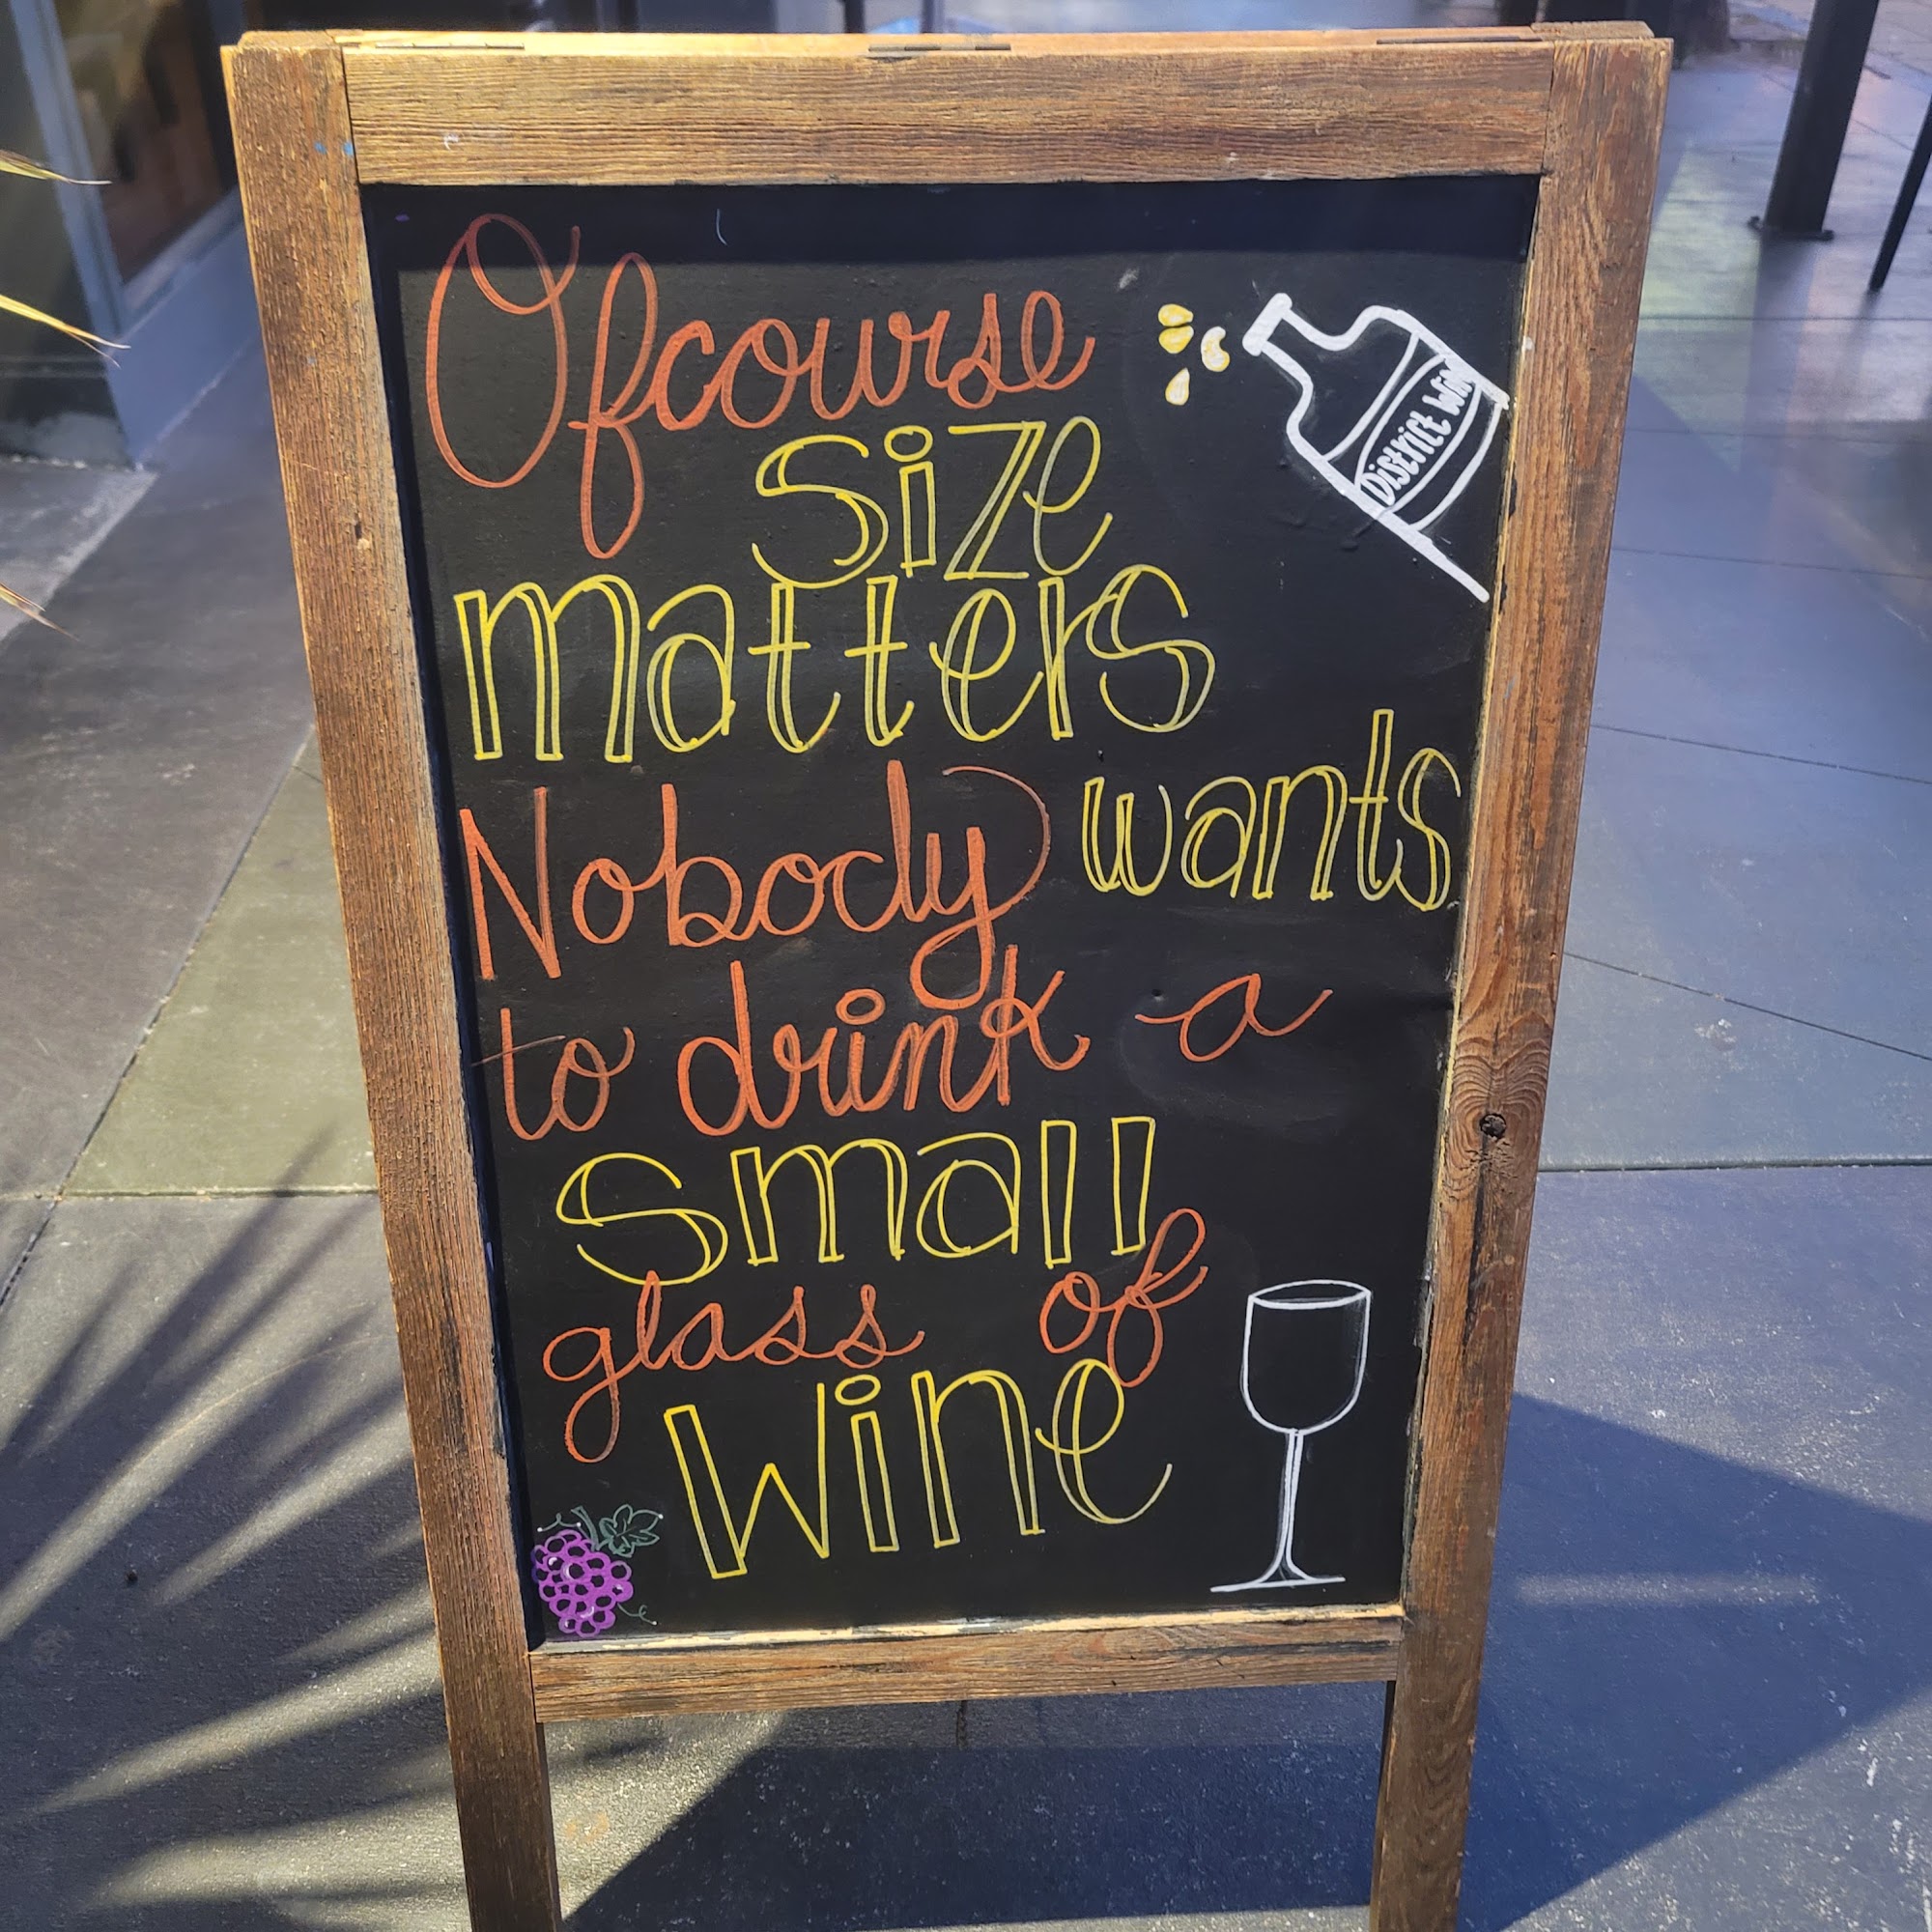 Ofcourse
size
matters
Nobody wants
to drink a
small
glass of
wine
District Wine